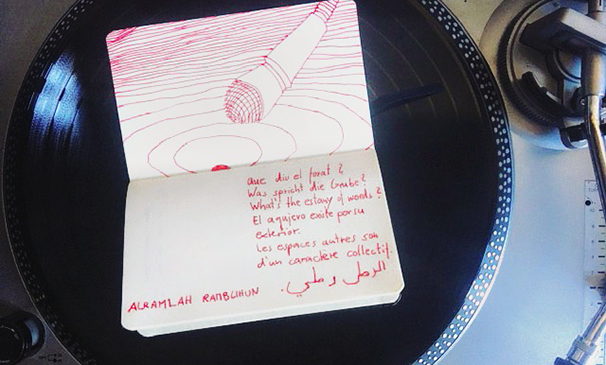 Que diu el forat?
Was spricht die Grube?
What's the estany of words?
El agujero existe por su
exterior.
Les espaces autres son
d'un caractère collectif.
الرمل رملي.
ALRAMLAH RAMBLIHUN